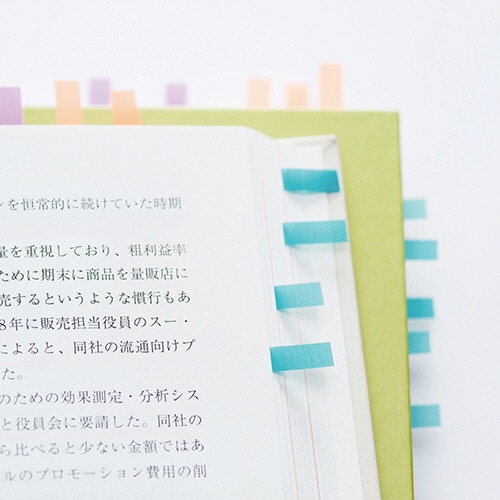 ンを恒常的に続けていた時期
量を重視しており、粗利益率
ために期末に商品を量販店に
売するというような慣行もあ
8年に販売担当役員のスー・
によると、同社の流通向けプ
た。
のための効果測定・分析シス
と役員会に要請した。同社の
ら比べると少ない金額ではあ
ルのプロモーション費用の削